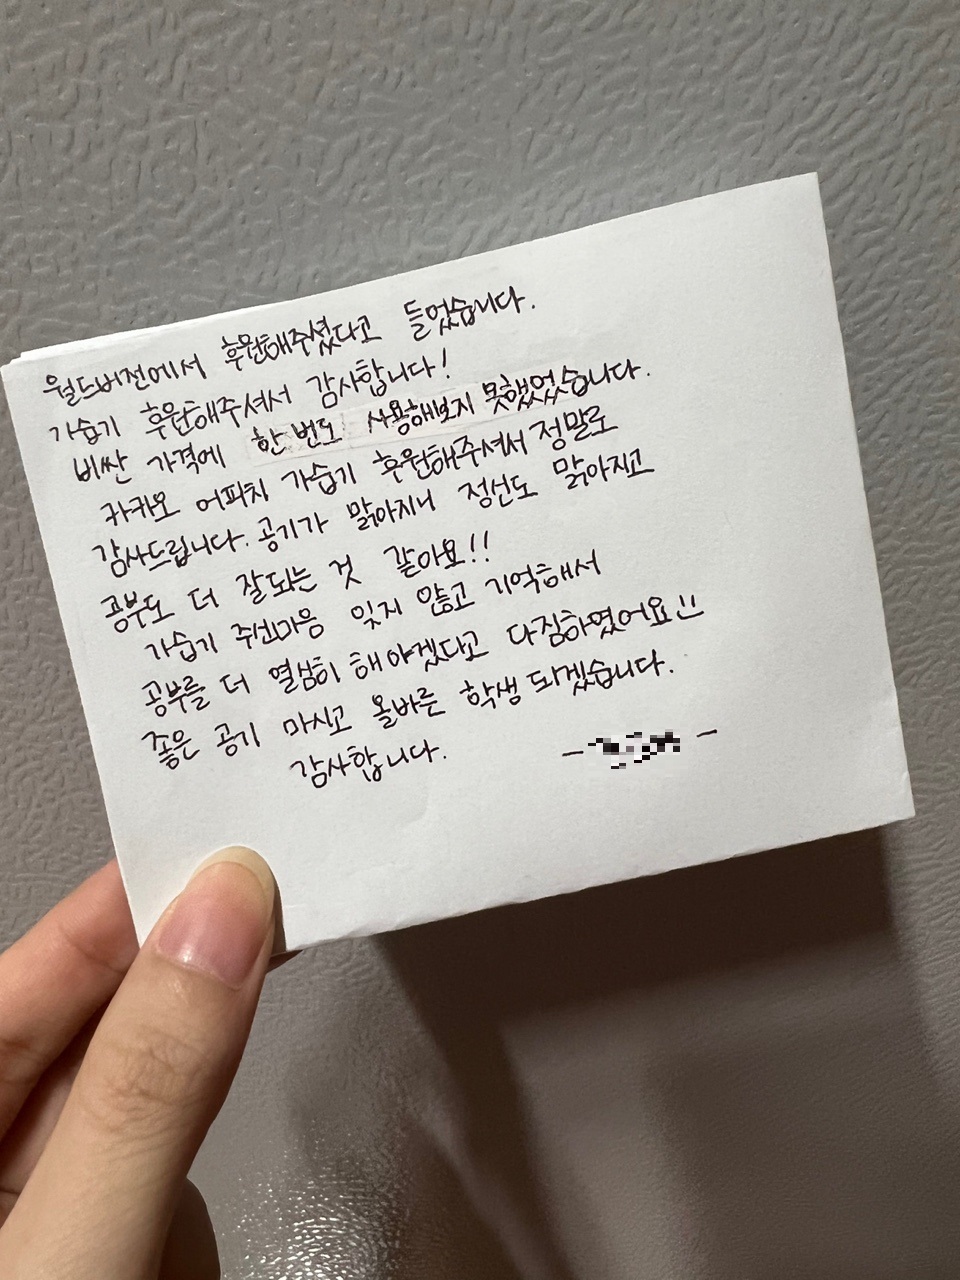 월드비전에서 후원해주셨다고 들었습니다.
가습기 후원해주셔서 감사합니다!
비싼 가격에 한 번도 사용해보지 못했었습니다.
카카오 어피치 가습기 후원해주셔서 정말로
감사드립니다. 공기가 맑아지니 정신도 맑아지고
공부도 더 잘되는 것 같아요!!
가습기 주신마음 잊지 않고 기억해서
공부를 더 열심히 해야겠다고 다짐하였어요
좋은 공기 마시고 올바른 학생 되겠습니다.
감사합니다.